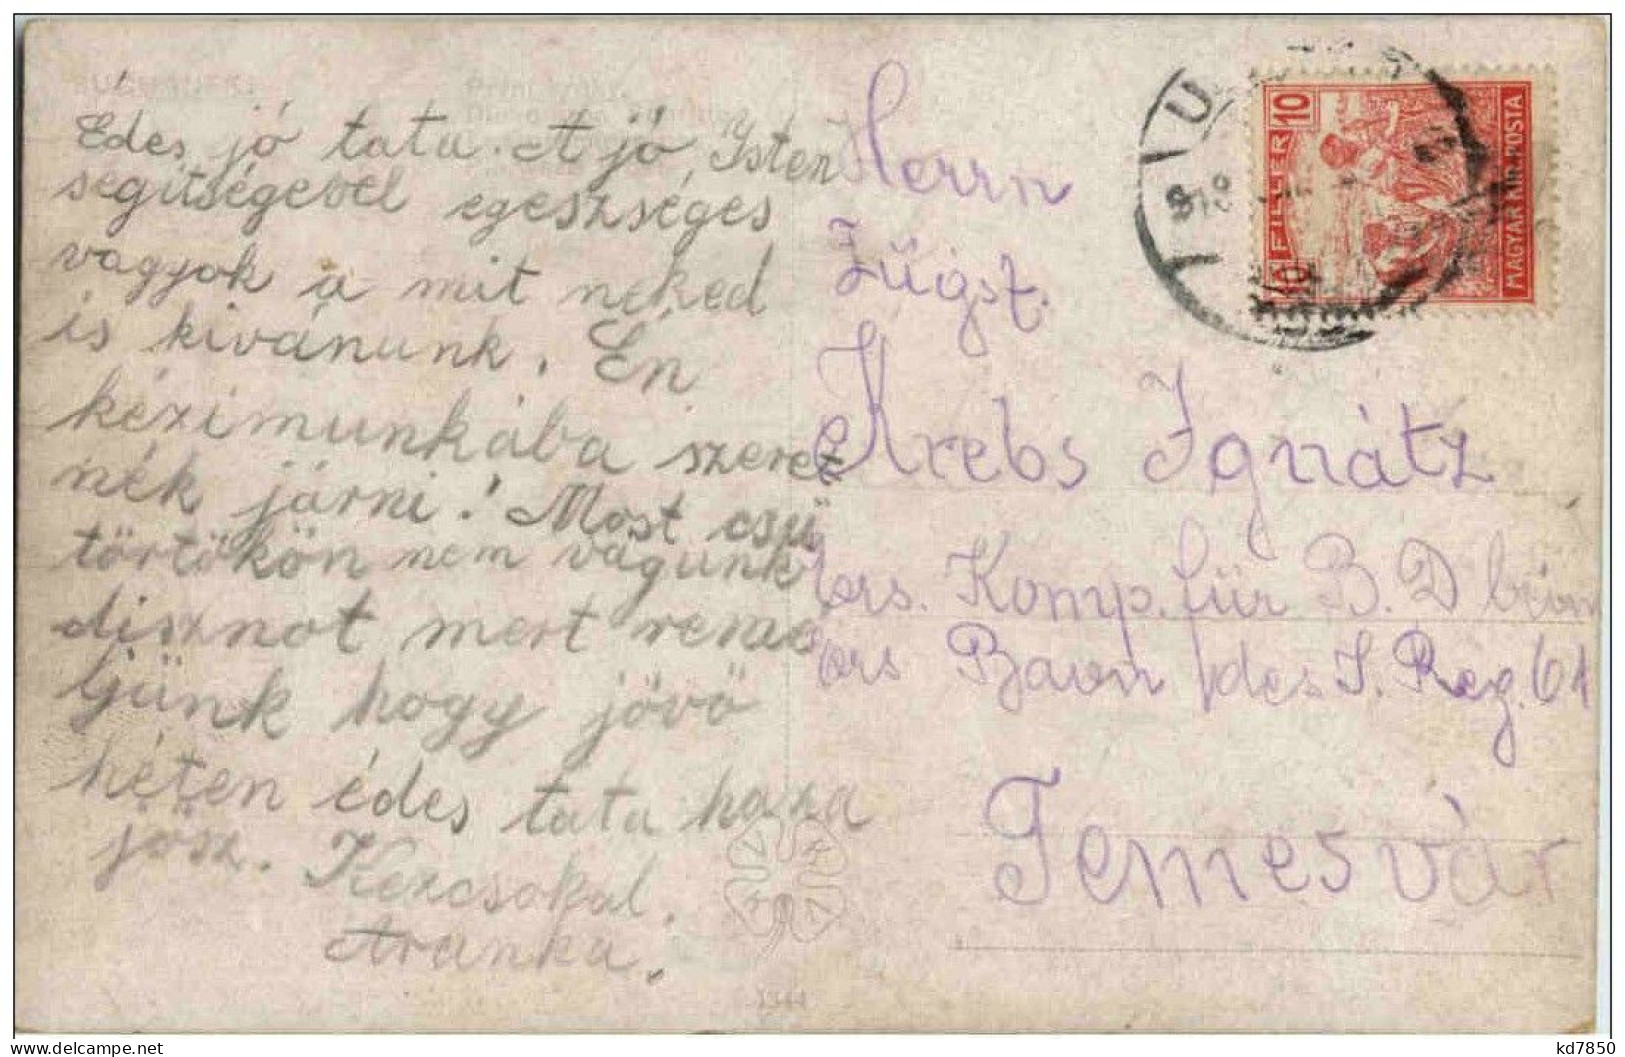 Édes jó tata. A jó Isten
segitségével egeszséges
vagyok a mit neked
is kivánunk. Én
kézimunkába szeret
nék járni! Most csü
törtökön nem vágunk
disznot mert reme
ljünk hogy jövő
héten édes tata haza
jösz. Kezcsokol
Aranka.
Herrn
Zügsf.
Krebs Ignátz
Ers. Komp. für B. D beim
Ers Baon des I. Reg. 61
Temesvár
10 FILLER
MAGYAR KIR. POSTA
1344
kd7850